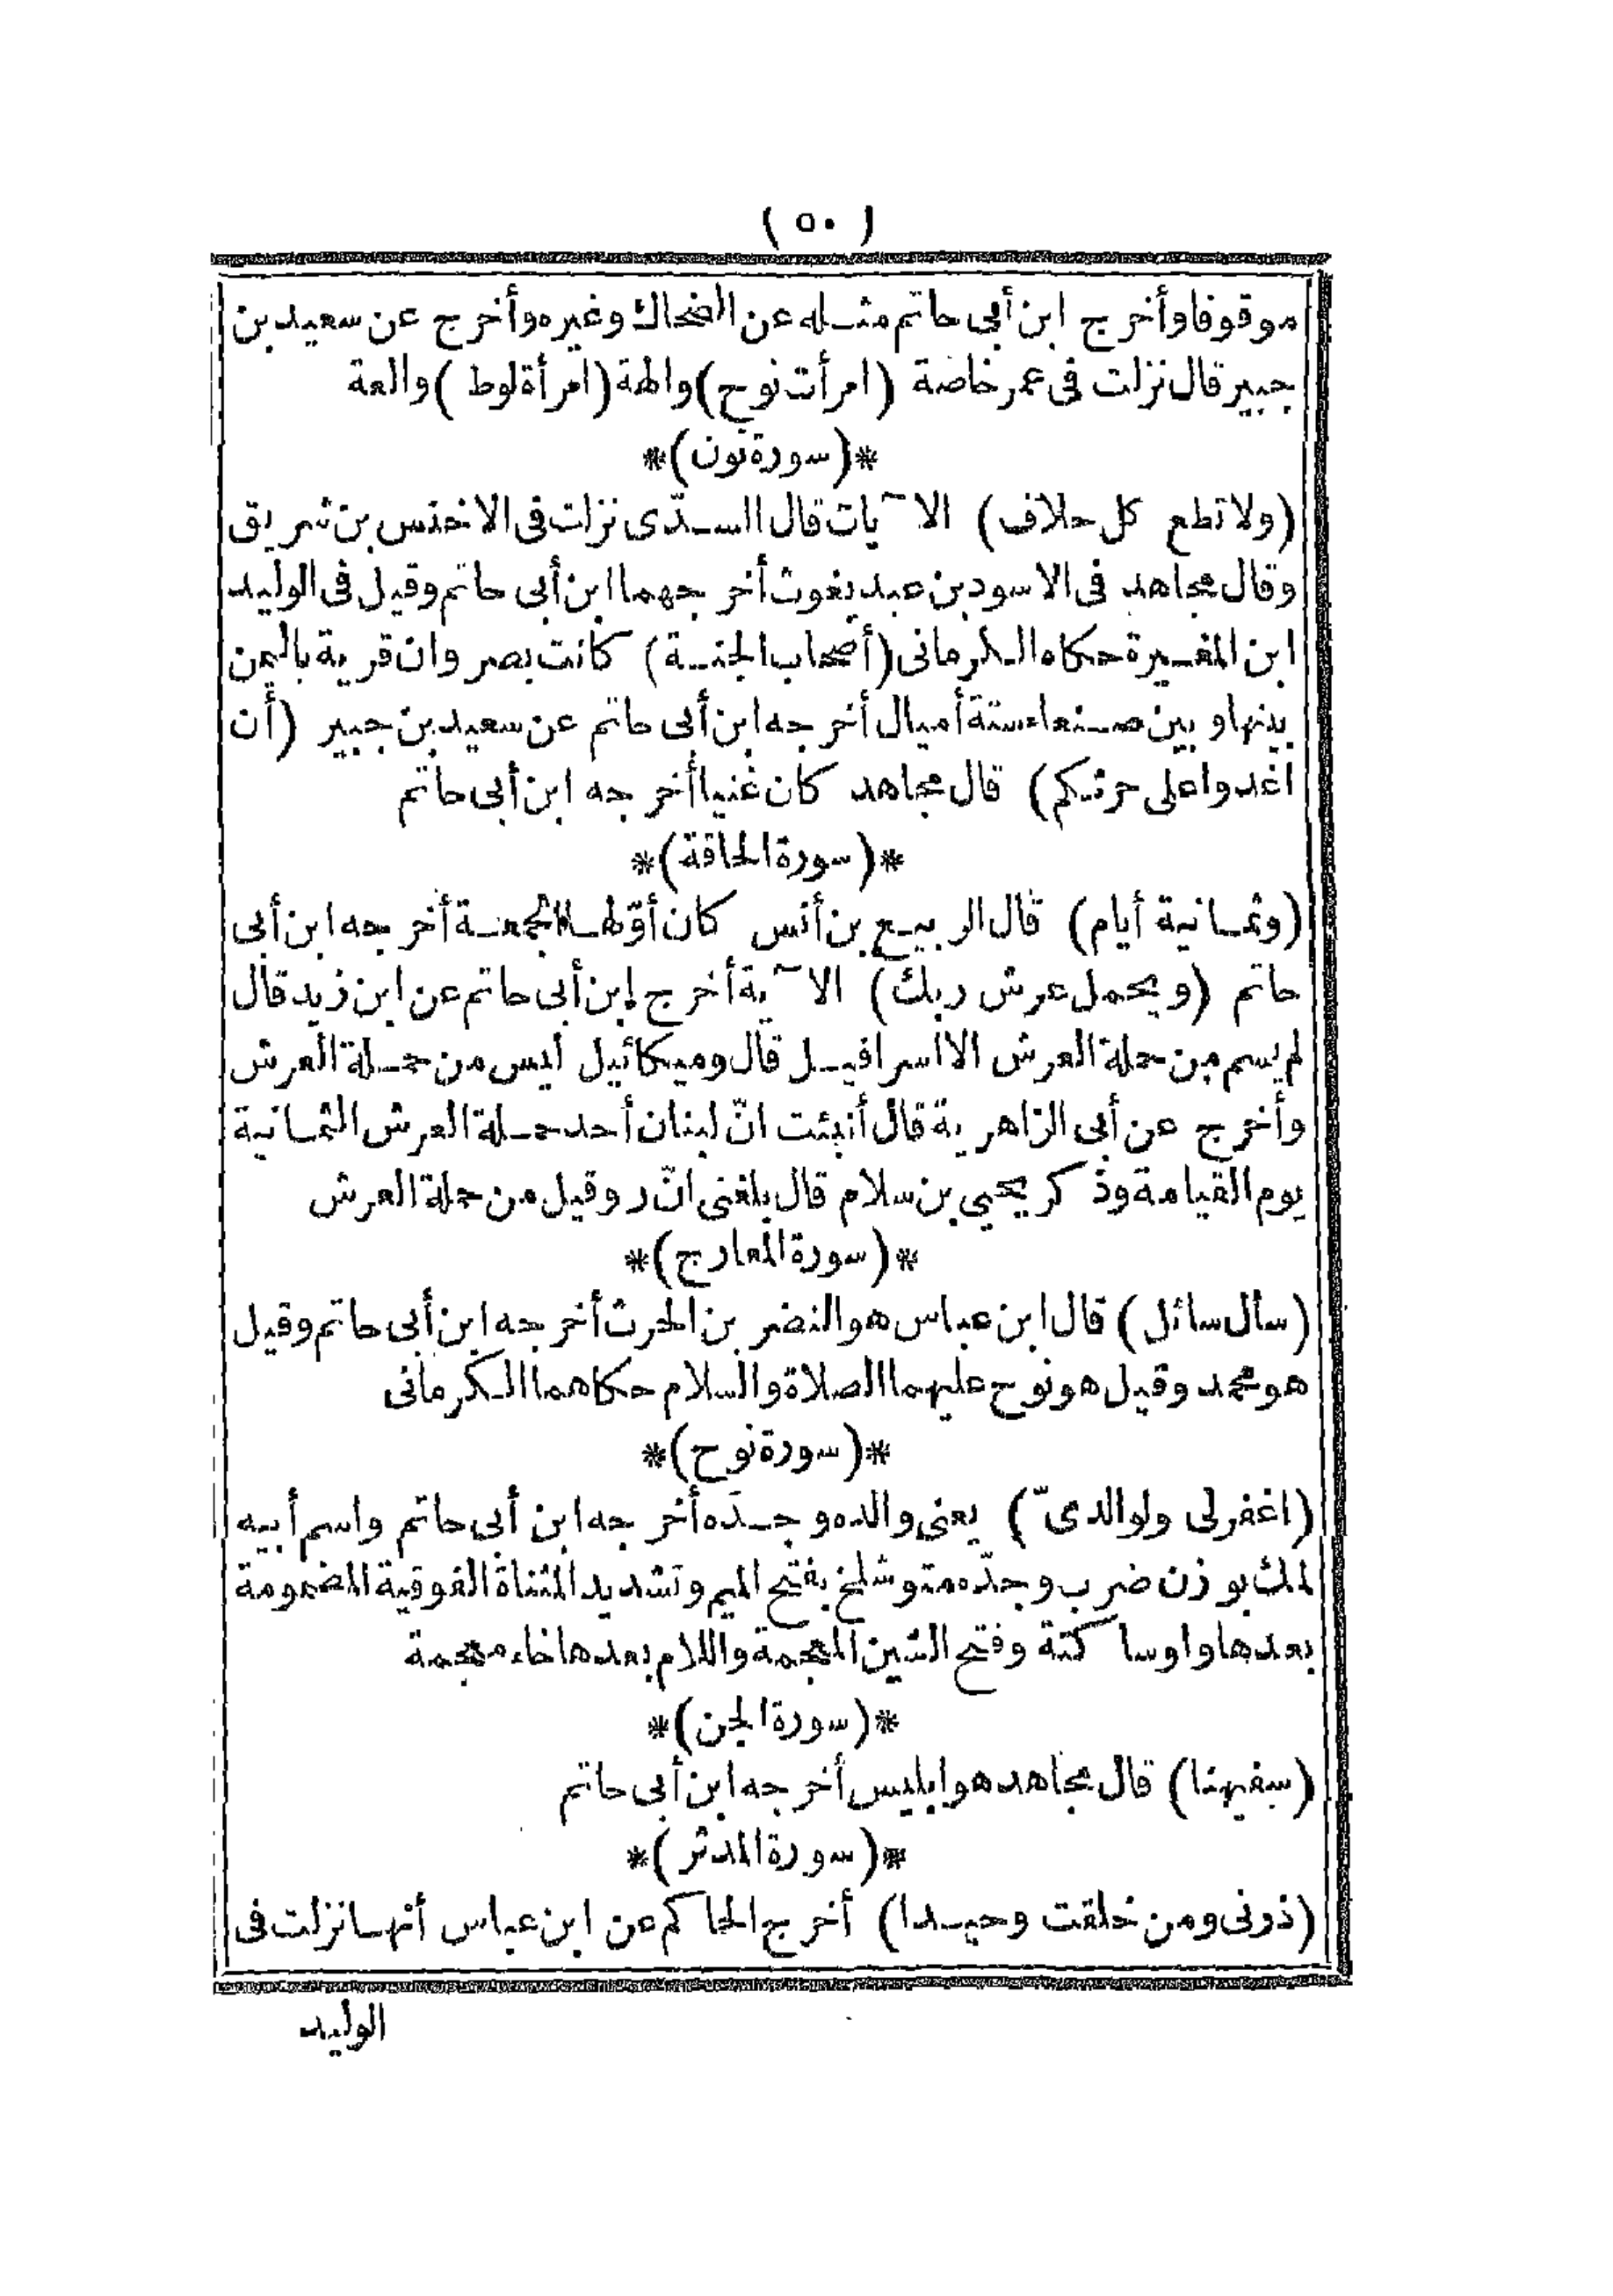 (٥٠)
موقوفا وأخرج ابن أبى حاتم مثله عن الضحاك وغيره وأخرج عن سعيد بن
جبير قال نزلت فى عمر خاصة (امرأت نوح) والهة (امرأة لوط) والعة
*(سورة نون)*
(ولا تطع كل حلاف) الآيات قال السدّى نزلت فى الاخنس بن شريق
وقال مجاهد فى الاسود بن عبد يغوث أخرجهما ابن أبى حاتم وقيل فى الوليد
ابن المغيرة حكاه الكرمانى (أصحاب الجنة) كانت بصروان قرية باليمن
بينها وبين صنعاء ستة أميال أخرجه ابن أبى حاتم عن سعيد بن جبير (أن
اغدوا على حرثكم) قال مجاهد كان عنبا أخرجه ابن أبى حاتم
*(سورة الحاقة)*
(وثمانية أيام) قال الربيع بن أنس كان أوّلها الجمعة أخرجه ابن أبى
حاتم (ويحمل عرش ربك) الآية أخرج ابن أبى حاتم عن ابن زيد قال
لم يسم من حملة العرش الا اسرافيل قال وميكائيل ليس من حملة العرش
وأخرج عن أبى الزاهرية قال أنبئت انّ لبنان أحد حملة العرش الثمانية
يوم القيامة وذكر يحيى بن سلام قال بلغنى انّ روقيل من حملة العرش
*(سورة المعارج)*
(سأل سائل) قال ابن عباس هو النضر بن الحرث أخرجه ابن أبى حاتم وقيل
هو محمد وقيل هو نوح عليهما الصلاة والسلام حكاهما الكرمانى
*(سورة نوح)*
(اغفر لى ولوالدىّ) يعنى والده وجدّه أخرجه ابن أبى حاتم واسم أبيه
لمك بوزن ضرب وجدّه متوشلخ بفتح الميم وتشديد المثناة الفوقية المضمومة
بعدها واو ساكنة وفتح الشين المعجمة واللام بعدها خاء معجمة
*(سورة الجن)*
(سفيهنا) قال مجاهد هو ابليس أخرجه ابن أبى حاتم
*(سورة المدثر)*
(ذرنى ومن خلقت وحيدا) أخرج الحاكم عن ابن عباس أنها نزلت فى
الوليد